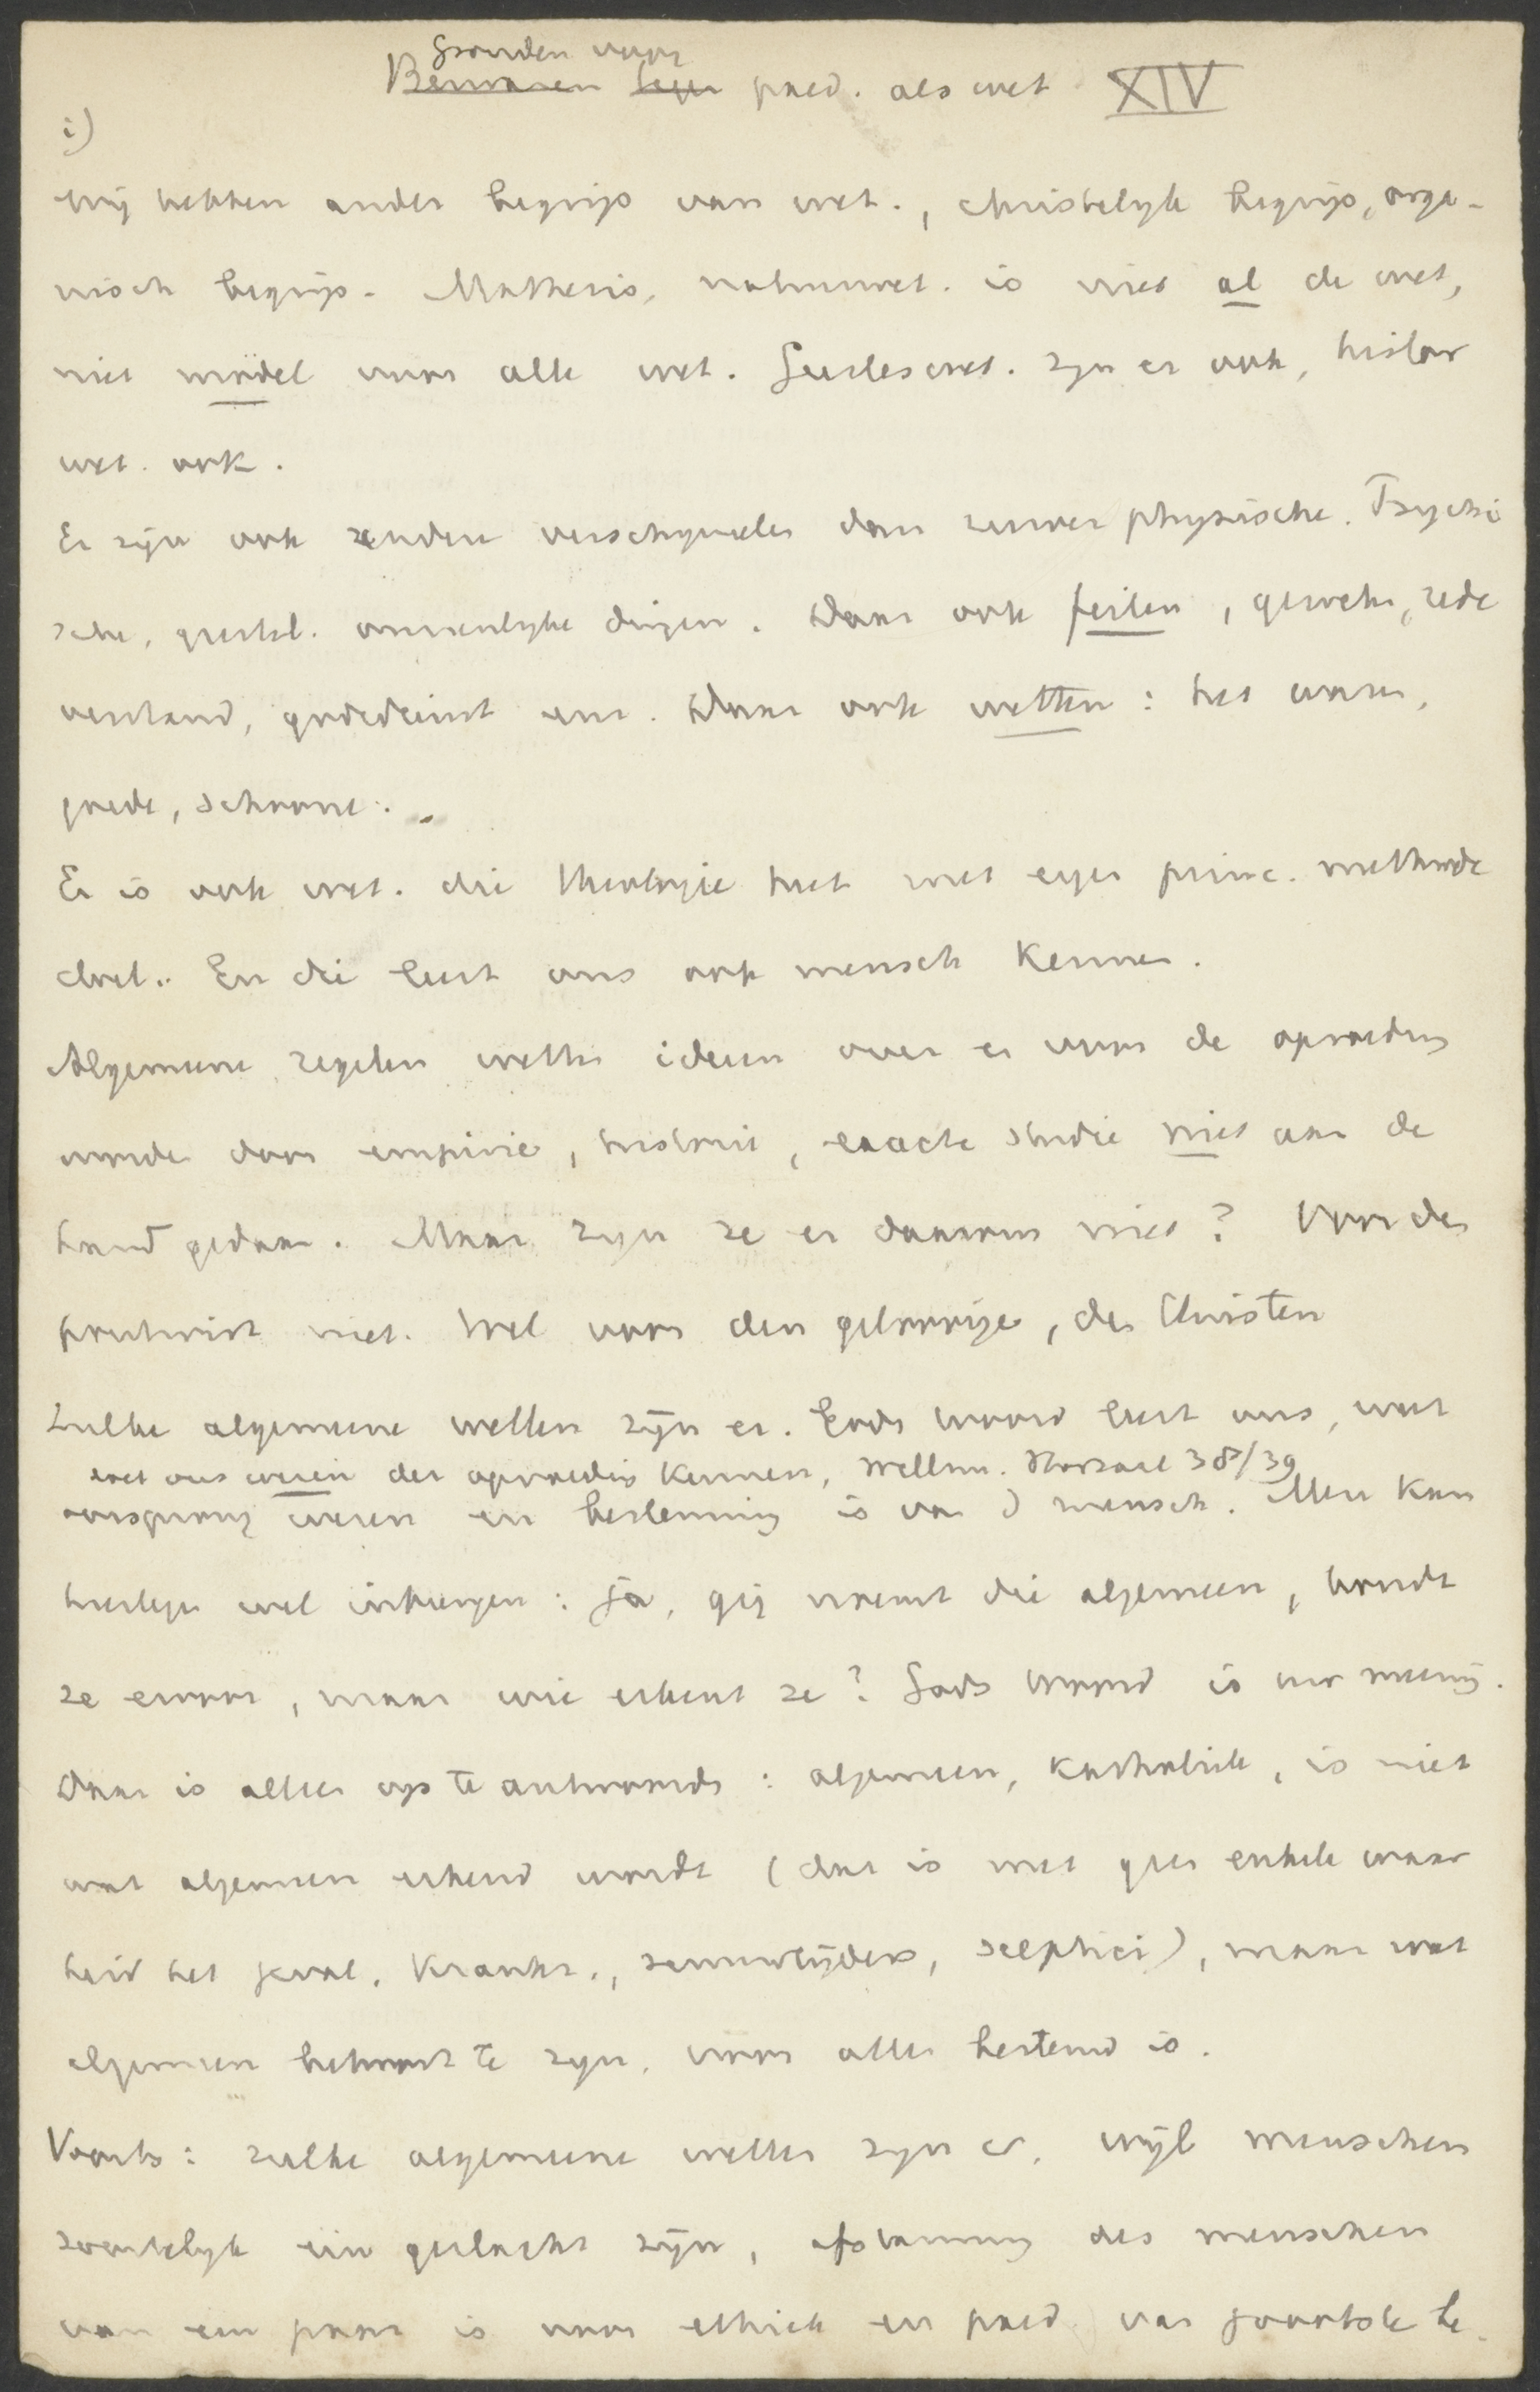 Gronden voor
Bezwaren tegen paed. als wet XIV
1)
Wij hebben ander begrip van wet., christelijk begrip, orga-
nisch begrip. Mathesis, natuurwet. is niet al de wet,
niet model voor alle wet. Geesteswet. zijn er ook, histor
wet. ook.
Er zijn ook andere verschijnselen dan zuiver physische. Psychi
sche, geestel. onzienlijke dingen. Daar ook feiten, geweten, rede
verstand, godsdienst enz. Daar ook wetten: het ware,
goede, schoone.
Er is ook wet. die theologie heet met eigen princ. methode
doel. En die leert ons ook mensch kennen.
Algemeene regelen wetten ideen over er voor de opvoeding
worden door empirie, historie, exacte studie niet aan de
hand gedaan. Maar zijn ze er daarom niet? Voor den
positivist niet. Wel voor den geloovige, den Christen
Zulke algemeene wetten zijn er. Gods woord leert ons, wat
leert ons wezen der opvoeding kennen, Willm. Noorzaal 38/39
oorsprong wezen en bestemming is van d mensch. Men kan
hiertegen wel inbrengen: Ja, gij noemt die algemeen, houdt
ze ervoor, maar wie erkent ze? Gods Woord is uw meening.
Daar is alleen op te antwoorden: algemeen, katholiek, is niet
wat algemeen erkend wordt (dat is met geen enkele waar
heid het geval, kranken, zenuwlijders, sceptici), maar wat
algemeen behoort te zijn, voor allen bestemd is.
Voorts: zulke algemeene wetten zijn er, wijl menschen
wezenlijk één geslacht zijn, afstamming des menschen
van een paar is voor ethiek en paed. van grootste be-